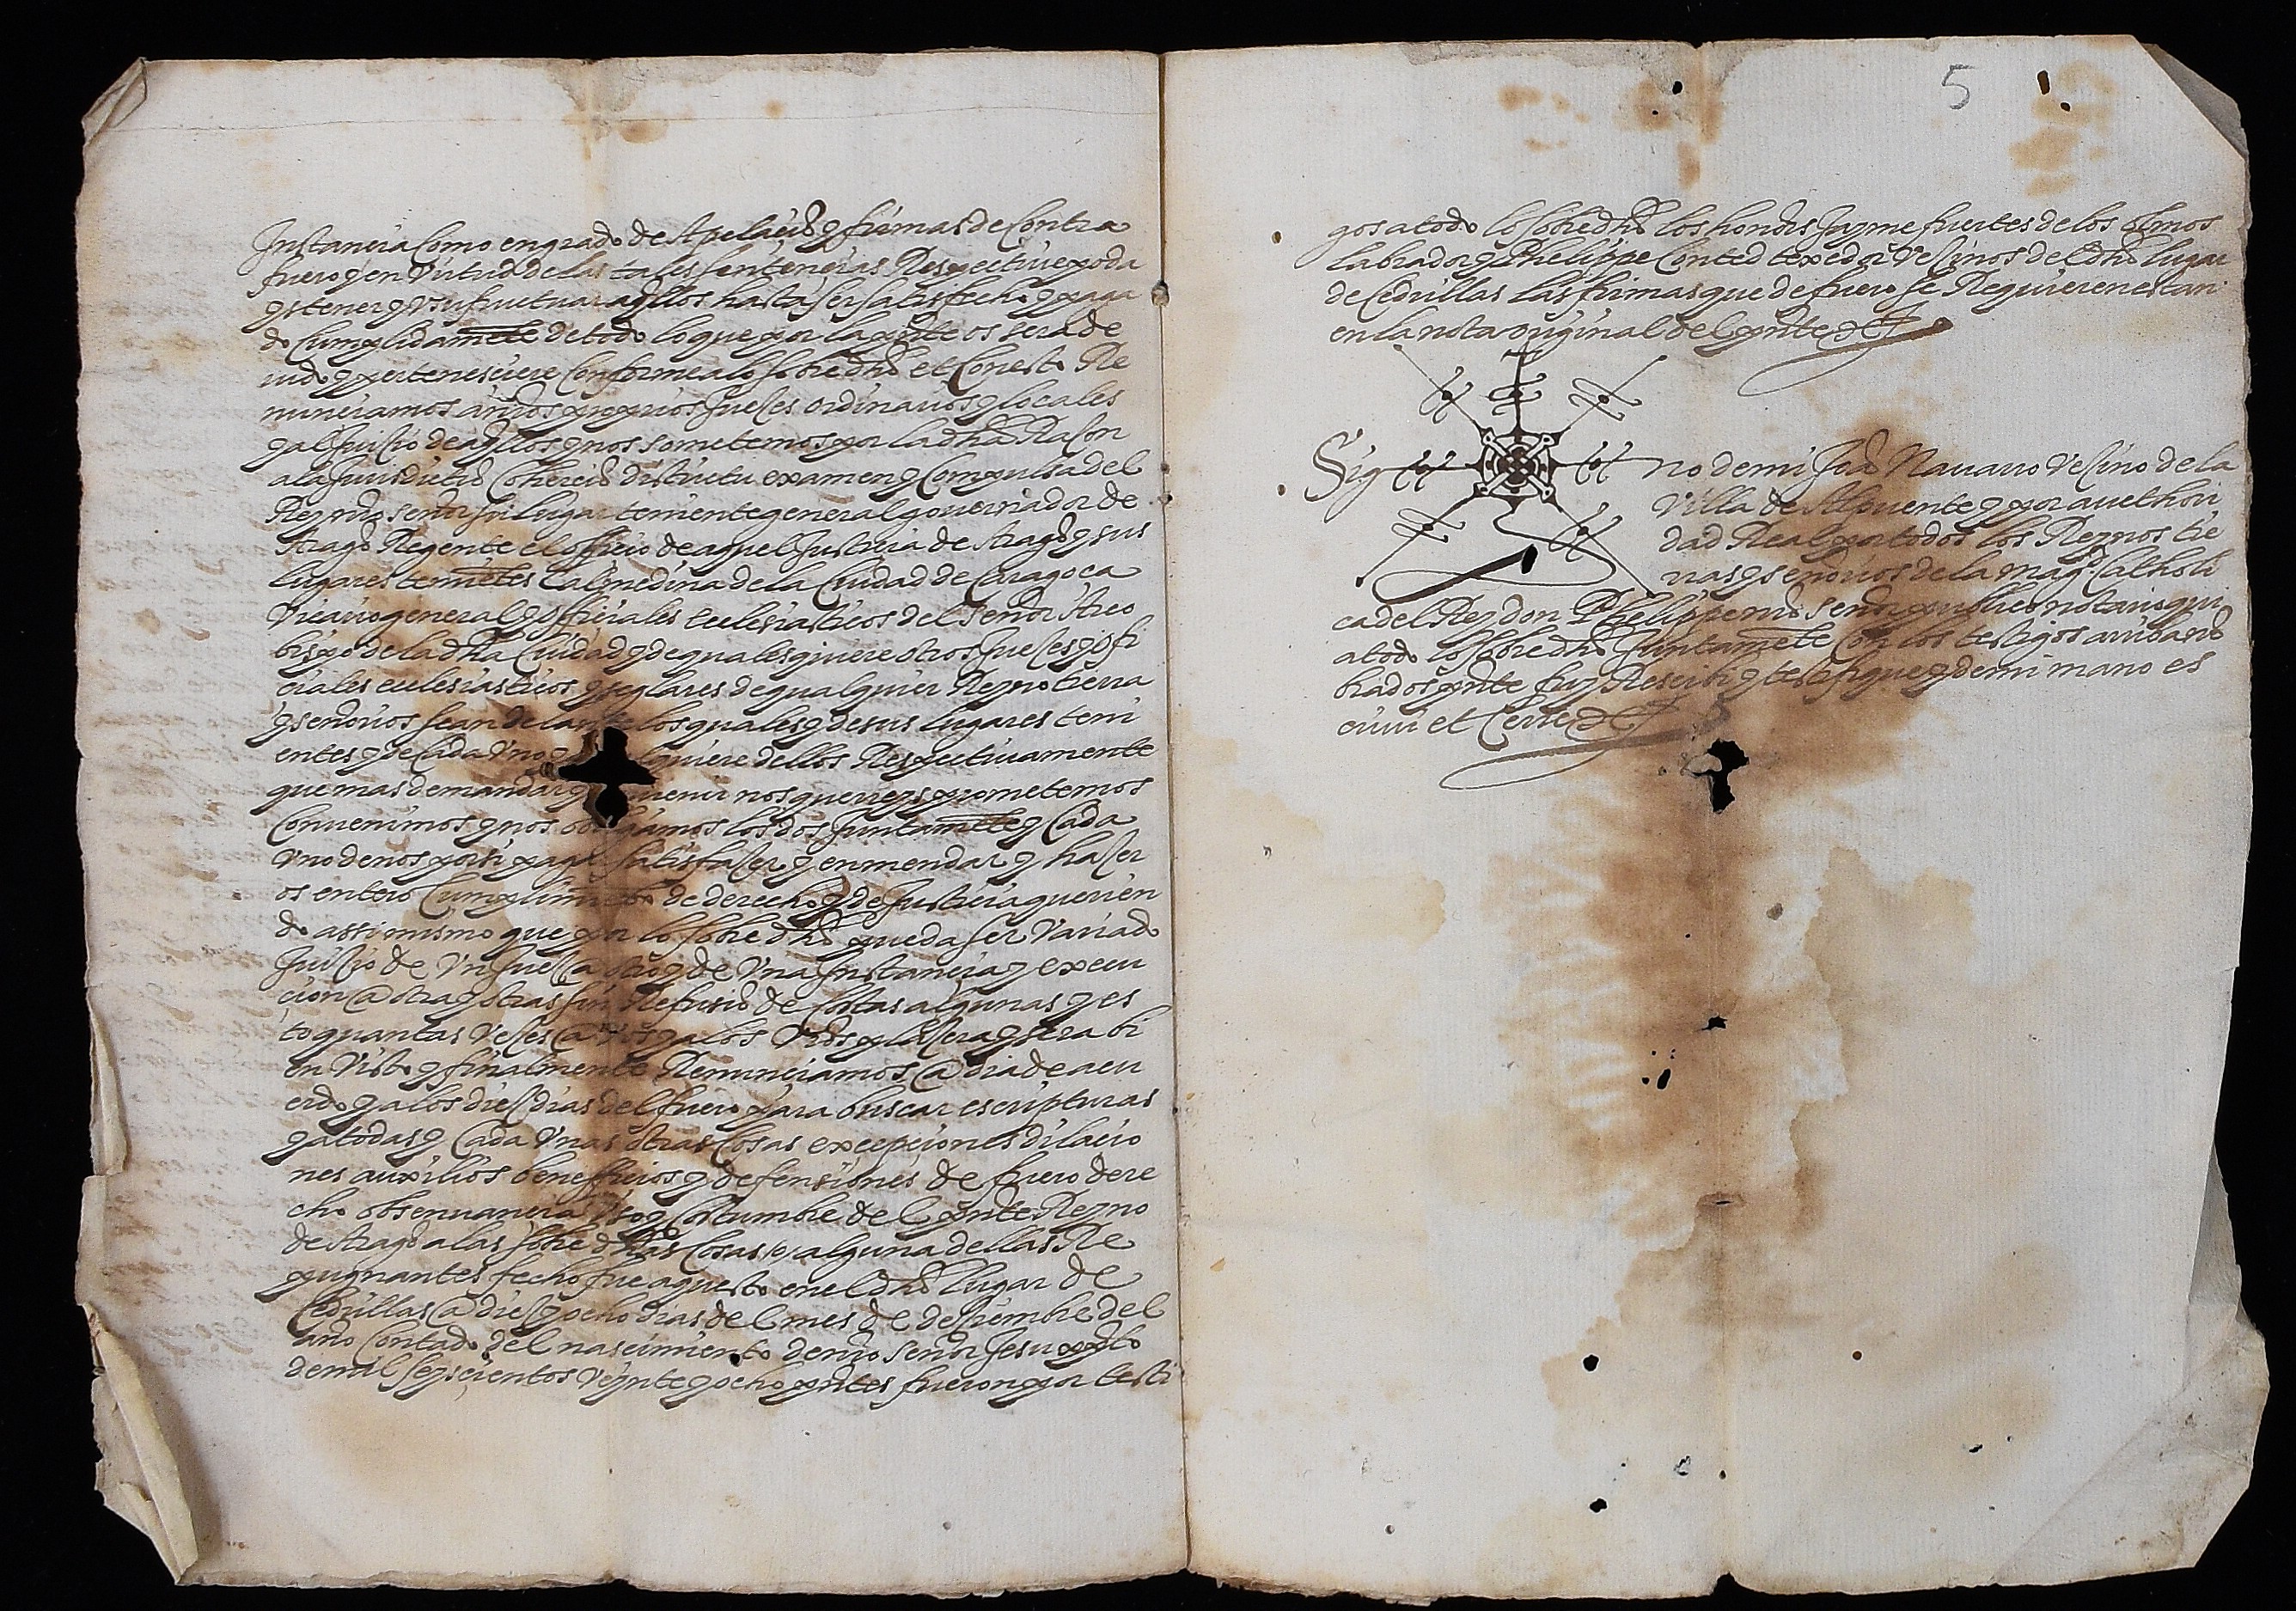 Instancia como en grado de Apelacio y firmas de Contra
fuero y en Virtud de las tales sentencias Respective poda
ys tener y Vsufructuar aqllos hasta ser satisfecho y paga
do Cumplidamete de todo lo que por la pnte os sera de
uido y pertenesciere Conforme a lo sobredho et Con esto Re
nunciamos a nros proprios Jueces ordinarios y locales
y al Juicio de aqllos y nos sometemos por la dha Racon
a la Jurisdictio Cohercio districtu examen y Compulsa del
Rey nro señor su lugar teniente general gouernador de
Arago Regente el officio de aquel Justicia de Arago y sus
lugares tenietes Calmedina de la Ciudad de Caragoca
Vicario general y officiales ecclesiasticos del señor Arco
bispo de la dha Ciudad y de qualesquiere otros Jueces y ofi
ciales ecclesiasticos y seglares de qualquier Reyno tierra
y señorios sean delante los quales y de sus lugares teni
entes y de Cada Vno y quiere dellos Respectiuamente
que mas demandar y uenir nos querreys prometemos
Conuenimos y nos obligamos los dos Juntamete y Cada
Vno de nos por si pagar satisfacer y enmendar y hacer
os entero Cumplimieto de derecho y de Justicia querien
do assi mismo que por lo sobredho pueda ser Variado
Juicio de Vn Juez a otro y de Vna Instancia y execu
cion a otra y otras sin Refusio de Costas algunas y es
to quantas Veces a vos y a los Vros placera y sera bi
en Visto y finalmente Renunciamos a dia de acu
erdo y a los diez dias del fuero para buscar escripturas
y a todas y Cada Vnas otras Cosas excepciones dilacio
nes auxilios benefficios y defensiones de fuero dere
cho obseruancia Vso y Costumbre del pnte Reyno
de Arago a las sobredhas Cosas /o/ alguna dellas Re
pugnantes fecho fue aquesto en el dho lugar de
Cedrillas a diez y ocho dias del mes de deciembre del
año Contado del nascimiento de nro señor Jesu xpto
de mil seyscientos Veynte y ocho pntes fueron por testi
5
gos a todo lo sobredho los honors Jayme fuertes de los olmos
labrador y Phelippe Conted texedor Vecinos del dho lugar
de Cedrillas las firmas que de fuero se Requieren estan
en la nota original del pnte
Sig no de mi Joa Nauarro Vecino de la
Villa de Alpuente y por aucthori
dad Real por todos los Reynos tie
rras y señorios de la magd Catholi
ca del Rey don Phelippe nro señor publico notario qui
a todo lo sobredho Juntamete Con los testigos arriba no
brados pnte fuy Rescibi y testifique y de mi mano es
criui et Cerre